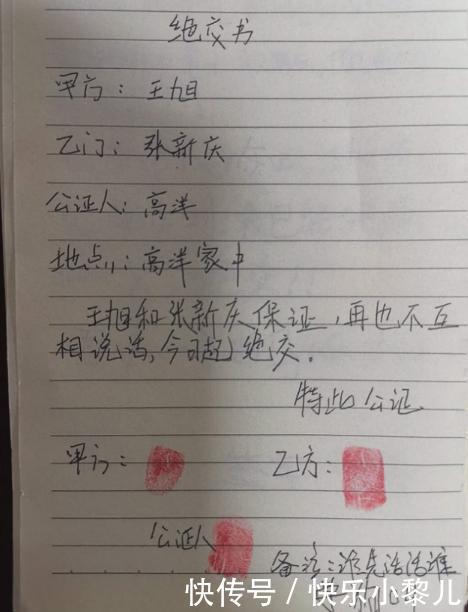 绝交书
甲方：王旭
乙方：张新庆
公证人：高洋
地点：高洋家中
王旭和张新庆保证，再也不互
相说话，今日起绝交。
特此公证
甲方：
乙方：
公证人
备注：谁先说话谁
快传号 / 快乐小黎儿